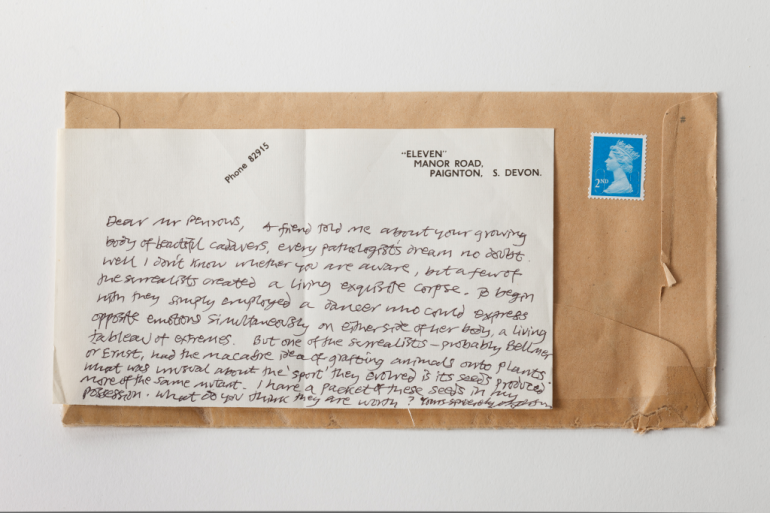 Phone 82915
"ELEVEN"
MANOR ROAD,
PAIGNTON, S. DEVON.
2ND
Dear Mr Penrows, A friend told me about your growing
body of beautiful cadavers, every pathologist's dream no doubt.
Well I don't know whether you are aware, but a few of
the surrealists created a living exquisite corpse. To begin
with they simply employed a dancer who could express
opposite emotions simultaneously on either side of her body, a living
tableau of extremes. But one of the surrealists – probably Bellmer
or Ernst, had the macabre idea of grafting animals onto plants.
What was unusual about the 'sport' they evolved is its seeds produced
more of the same mutant. I have a packet of these seeds in my
possession. What do you think they are worth? Yours sincerely